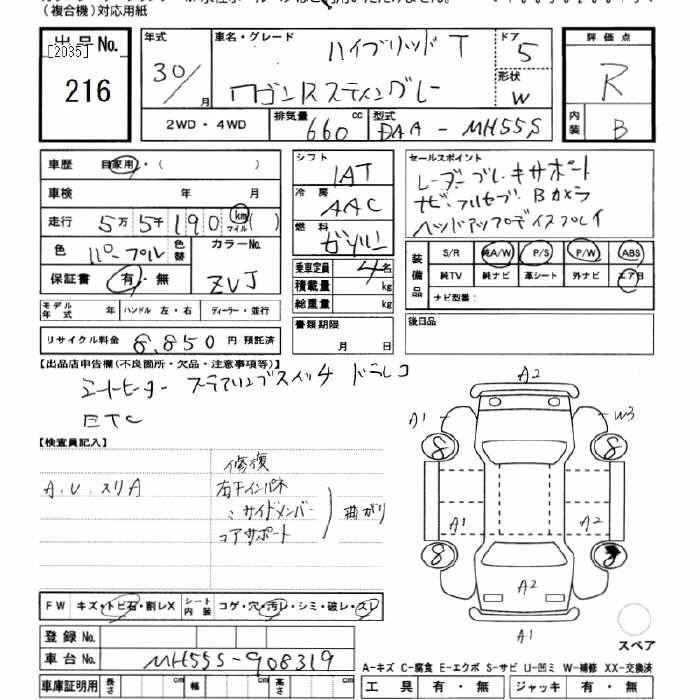 (複合機)対応用紙
出品No.
[2035]
216
年式
30/
月
車名・グレード
ハイブリッド T
ワゴンR スティングレー
ドア
5
形状
W
2WD・4WD
排気量
660
cc
型式
DAA - MH55S
評価点
R
内装
B
車歴 自家用・( )
車検 年 月
走行 5万 5千 190 km マイル ( )
色 パープル 色替
カラーNo.
ZVJ
保証書 有・無
シフト
IAT
冷房
AAC
燃料
ガソリン
乗車定員 4名
積載量 kg
総重量 kg
セールスポイント
レーダーブレーキサポート
ナビ フルセグ Bカメラ
ヘッドアップディスプレイ
装備品
S/R 純A/W P/S P/W ABS
純TV 純ナビ 革シート 外ナビ エアB
ナビ型番:
モデル年式 年 ハンドル 左・右 ディーラー・並行
書類期限
月 日
後日品
リサイクル料金 8,850 円 預託済
【出品店申告欄(不良箇所・欠品・注意事項等)】
シートヒーター ステアリングスイッチ ドラレコ
ETC
【検査員記入】
A.U.スリA
修復
右フインパネ
〃 サイドメンバー
コアサポート
曲がり
A2
A1
W3
8
8
A1
A2
8
8
A2
A1
スペア
FW キズ・トビ石・割レX
シート内装 コゲ・穴・汚レ・シミ・破レ・スレ
登録 No.
車台 No. MH55S-908319
A-キズ C-腐食 E-エクボ S-サビ U-凹ミ W-補修 XX-交換済
車庫証明用 長さ 幅 高さ
工具 有・無 ジャッキ 有・無